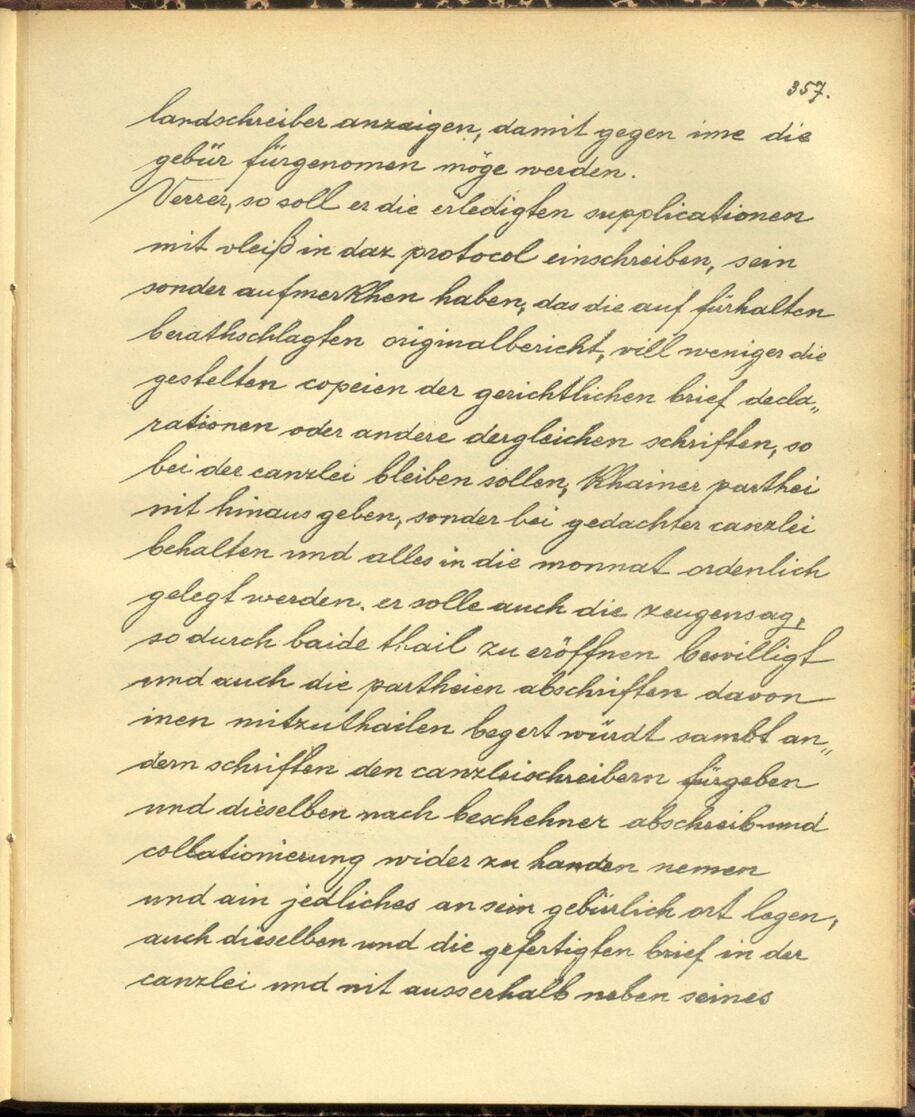 357.
landschreiber anzaigen, damit gegen ime die
gebür fürgenomen möge werden.
Verrer, so soll er die erledigten supplicationen
mit vleiß in daz protocol einschreiben, sein
sonder aufmerkhen haben, das die auf fürhalten
berathschlagten originalbericht, vill weniger die
gestelten copeien der gerichtlichen brief decla„
rationen oder andere dergleichen schriften, so
bei der canzlei bleiben sollen, khainer parthei
nit hinaus geben, sonder bei gedachter canzlei
behalten und alles in die monnat ordenlich
gelegt werden. er solle auch die zeugensag,
so durch baide thail zu eröffnen bewilligt
und auch die partheien abschriften davon
inen mitzuthailen begert würdt sambt an„
dern schriften den canzleischreibern fürgeben
und dieselben nach beschehner abschreib und
collationierung wider zu handen nemen
und ain jedliches an sein gebürlich ort legen,
auch dieselben und die gefertigten brief in der
canzlei und nit ausserhalb neben seines